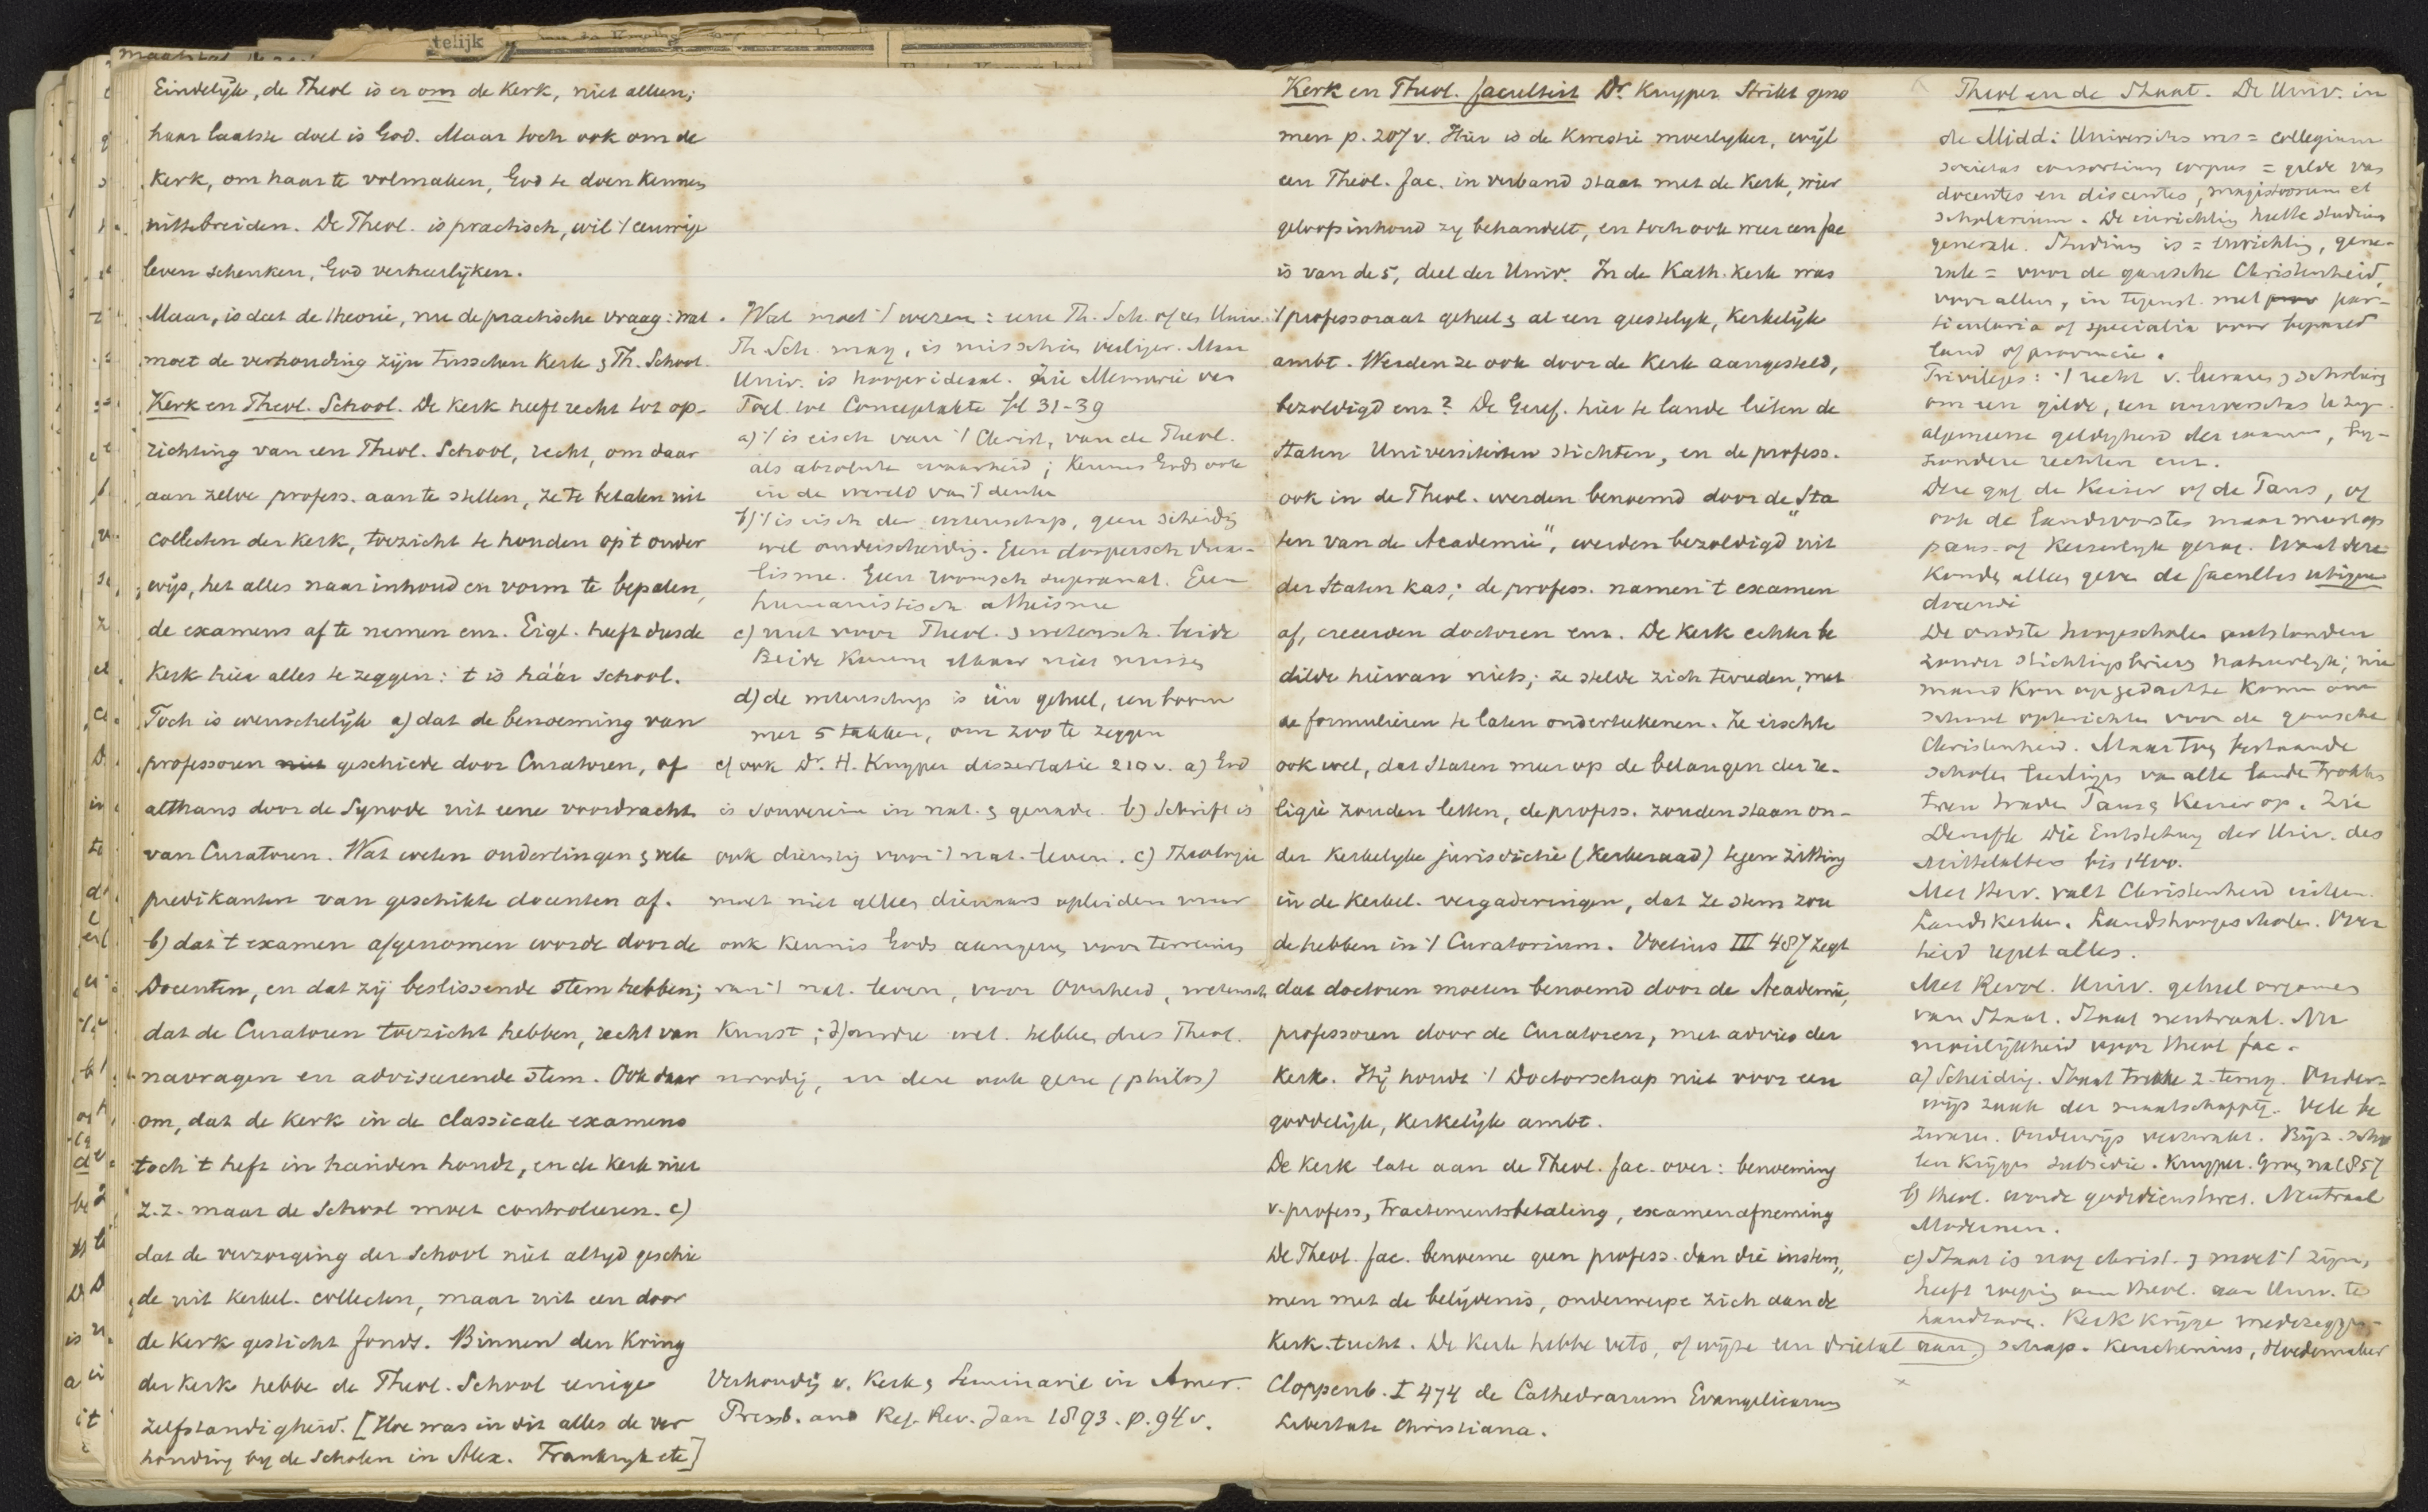 telijk
Eindelijk, de Theol is er om de Kerk, niet alleen;
haar laatste doel is God. Maar toch ook om de
Kerk, om haar te volmaken, God te doen kennen
uittebreiden. De Theol. is practisch, wil 't eeuwige
leven schenken, God verheerlijken.
Maar, is dat de theorie, nu de practische vraag: wat
moet de verhouding zijn tusschen Kerk & Th. School.
Kerk en Theol. School. De Kerk heeft recht tot op-
richting van een Theol. School, recht, om daar
aan zelve profess. aan te stellen, ze te betalen uit
collecten der Kerk, toezicht te houden op 't onder
wijs, het alles naar inhoud en vorm te bepalen,
de examens af te nemen enz. Eigl. heeft dus de
Kerk hier alles te zeggen: 't is háár school.
Toch is wenschelijk a) dat de benoeming van
professoren niet geschiede door Curatoren, of
althans door de Synode uit eene voordracht
van Curatoren. Wat weten ouderlingen & vele
predikanten van geschikte docenten af.
b) dat 't examen afgenomen worde door de
Docenten, en dat zij beslissende stem hebben;
dat de Curatoren toezicht hebben, recht van
navragen en adviseerende stem. Ook daar
om, dat de Kerk in de classicale examens
toch 't heft in handen houdt, en de Kerk niet
z.z. maar de School moet controleren. c)
dat de verzorging der School niet altijd geschie
de uit Kerkel. collecten, maar uit een door
de Kerk gesticht fonds. Binnen den Kring
der Kerk hebbe de Theol. School eenige
zelfstandigheid. [Hoe was in dit alles de ver
houding by de Scholen in Alex. Frankryk etc]
Wat moet 't wezen: eene Th. Sch. of es Univ.
Th. Sch. mag, is misschien veiliger. Maar
Univ. is hooger ideaal. Zie Memorie van
Toel. tot Conceptakte bl 31-39
a) 't is eisch van 't Christ, van de Theol.
als absolute waarheid; Kennis Gods ook
in de wereld van 't denken
b) 't is eisch der wetenschap, geen scheidig
wel onderscheidig. Geen doopersch dua-
lisme. Geen roomsch supranat. Geen
humanistisch atheisme
c) met voor Theol. & wetensch. beide
Beide kunnen elkaar niet missen
d) de wetenschap is één geheel, een boom
met 5 takken, om zoo te zeggen
e) ook Dr. H. Kuyper dissertatie 210 v. a) God
is souverein in nat. & genade. b) Schrift is
ook dienstig voor 't nat. leven. c) Theologie
moet niet alleen dienaars opleiden maar
ook kennis Gods aangeven voor terreinen
van 't nat. leven, voor Overheid, wetensch
Kunst; d) andre wet. hebben dus Theol.
noodig, en deze ook gene (philos)
Verhoudig v. Kerk & Seminarie in Amer.
Presb. and Ref. Rev. Jan 1893. p. 94 v.
Kerk en Theol. faculteit Dr. Kuyper Strikt geno
men p. 207 v. Hier is de Kwestie moeilyker, wijl
een Theol. fac. in verband staat met de Kerk, wier
geloofsinhoud zy behandelt, en toch ook weer een fac
is van de 5, deel der Univ. In de Kath. Kerk was
't professoraat geheel & al een geestelyk, Kerkelijk
ambt. Werden ze ook door de Kerk aangesteld,
bezoldigd enz? De Geref. hier te lande lieten de
Staten Universiteiten stichten, en de profess.
ook in de Theol. werden benoemd door de „Sta
ten van de Academie", werden bezoldigd uit
der Staten kas; de profess. namen 't examen
af, creeerden doctoren enz. De Kerk echter be
dilde hiervan niets; ze stelde zich tevreden, met
de formulieren te laten ondertekenen. Ze eischte
ook wel, dat Staten meer op de belangen der re-
ligie zouden letten, de profess. zouden staan on-
der Kerkelyke jurisdictie (Kerkeraad) tegen zitting
in de Kerkel. vergaderingen, dat ze stem zou
de hebben in 't Curatorium. Voetius III 487 zegt
dat doctoren moeten benoemd door de Academie,
professoren door de Curatoren, met advies der
Kerk. Hij houdt 't Doctorschap niet voor een
goddelijk, Kerkelijk ambt.
De Kerk late aan de Theol. fac. over: benoeming
v. profess, Tractementsbetaling, examenafneming
De Theol. fac. benoeme geen profess. dan die instem„
men met de belijdenis, onderwerpe zich aan de
Kerk. tucht. De Kerk hebbe veto, of wijze een drietal aan
Cloppenb. I 474 de Cathedrarum Evangelicarum
Libertate Christiana.
Theol en de Staat. De Univ. in
de Midd: Universitas was = collegium
societas consortium corpus = gilde van
docentes en discentes, magistrorum et
scholarium. De inrichtig heette studium
generale. Studium is = inrichtig, gene-
rale = voor de gansche Christenheid,
voor allen, in tegenst. met par-
ticularia of specialia voor bepaald
land of provincie.
Privileges: 't recht v. leeraars & scholieren
om een gilde, een universitas te zyn
algemeene geldigheid der examens, by-
zondere rechten enz.
Deze gaf de Keizer of de Paus, of
ook de landvorsten maar meest op
paus- of Keizerlyk gezag. Want deze
konden alleen geven de facultas ubique
docendi
De oudste hoogescholen ontstonden
zonder stichtingsbrieven natuurlyk; nie
mand kon op gedachte komen om
school opterichten voor de gansche
Christenheid. Maar toen bestaande
scholen leerlinges van alle landen trokken
toen traden Paus & Keizer op. Zie
Denifle Die Entstehung der Univ. des
Mittelalters bis 1400.
Met Herv. valt Christenheid uiteen.
Landskerken. Landshoogescholen. Over
heid regelt alles.
Met Revol. Univ. geheel organen
van Staat. Staat neutraal. Nu
moeilijkheid voor theol fac.
a) Scheidig. Staat trekke z. terug. Onder-
wijs zaak der maatschappij. Vele be
zwaren. Onderwijs verzwakt. Bijz. scho
len krijgen subsidie. Kuyper. Groen na 1857
b) theol. worde godsdienstwet. Neutraal
Modernen.
c) Staat is nog christ. & moet 't zijn,
heeft roeping om theol. aan Univ. te
handhaven. Kerk krijge medezeggen-
schap. Keuchenius, Hoedemaker